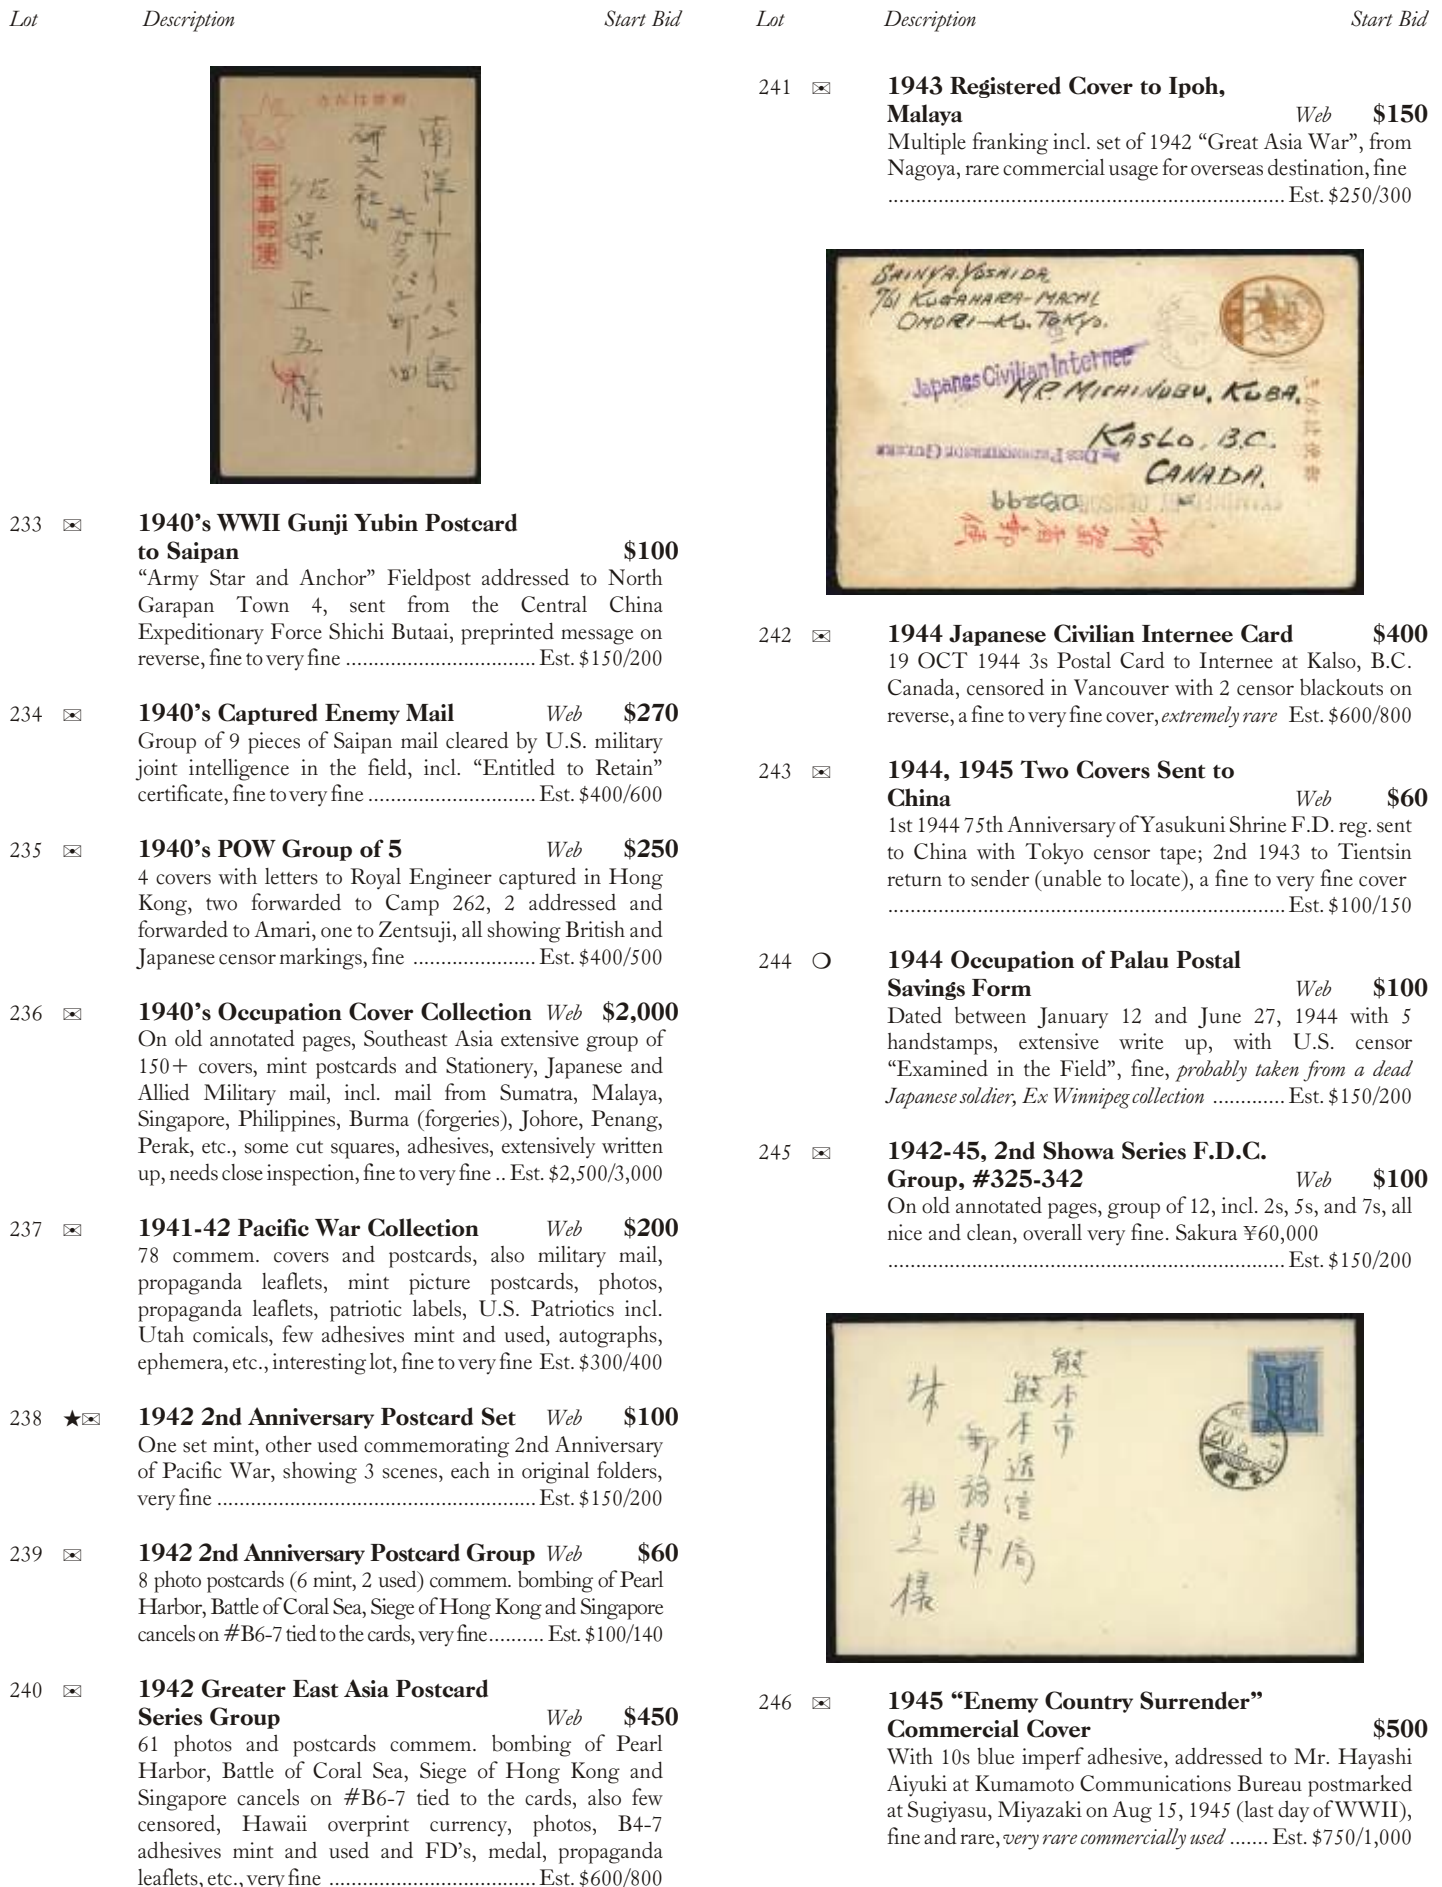 Lot Description Start Bid
軍事郵便
南洋サイパン島
研文社内
正五様
233 ✉ 1940’s WWII Gunji Yubin Postcard
to Saipan $100
“Army Star and Anchor” Fieldpost addressed to North
Garapan Town 4, sent from the Central China
Expeditionary Force Shichi Butaai, preprinted message on
reverse, fine to very fine .................................. Est. $150/200
234 ✉ 1940’s Captured Enemy Mail Web $270
Group of 9 pieces of Saipan mail cleared by U.S. military
joint intelligence in the field, incl. “Entitled to Retain”
certificate, fine to very fine .............................. Est. $400/600
235 ✉ 1940’s POW Group of 5 Web $250
4 covers with letters to Royal Engineer captured in Hong
Kong, two forwarded to Camp 262, 2 addressed and
forwarded to Amari, one to Zentsuji, all showing British and
Japanese censor markings, fine ...................... Est. $400/500
236 ✉ 1940’s Occupation Cover Collection Web $2,000
On old annotated pages, Southeast Asia extensive group of
150+ covers, mint postcards and Stationery, Japanese and
Allied Military mail, incl. mail from Sumatra, Malaya,
Singapore, Philippines, Burma (forgeries), Johore, Penang,
Perak, etc., some cut squares, adhesives, extensively written
up, needs close inspection, fine to very fine .. Est. $2,500/3,000
237 ✉ 1941-42 Pacific War Collection Web $200
78 commem. covers and postcards, also military mail,
propaganda leaflets, mint picture postcards, photos,
propaganda leaflets, patriotic labels, U.S. Patriotics incl.
Utah comicals, few adhesives mint and used, autographs,
ephemera, etc., interesting lot, fine to very fine Est. $300/400
238 ★✉ 1942 2nd Anniversary Postcard Set Web $100
One set mint, other used commemorating 2nd Anniversary
of Pacific War, showing 3 scenes, each in original folders,
very fine ......................................................... Est. $150/200
239 ✉ 1942 2nd Anniversary Postcard Group Web $60
8 photo postcards (6 mint, 2 used) commem. bombing of Pearl
Harbor, Battle of Coral Sea, Siege of Hong Kong and Singapore
cancels on #B6-7 tied to the cards, very fine.......... Est. $100/140
240 ✉ 1942 Greater East Asia Postcard
Series Group Web $450
61 photos and postcards commem. bombing of Pearl
Harbor, Battle of Coral Sea, Siege of Hong Kong and
Singapore cancels on #B6-7 tied to the cards, also few
censored, Hawaii overprint currency, photos, B4-7
adhesives mint and used and FD’s, medal, propaganda
leaflets, etc., very fine ..................................... Est. $600/800
Lot Description Start Bid
241 ✉ 1943 Registered Cover to Ipoh,
Malaya Web $150
Multiple franking incl. set of 1942 “Great Asia War”, from
Nagoya, rare commercial usage for overseas destination, fine
....................................................................... Est. $250/300
SAINYA.YOSHIDA
761 KUGAHARA-MACHI
OMORI-KU. TOKYO.
Japanes Civilian Internee
MR. MICHINOBU, KUBA.
KASLO, B.C.
CANADA.
DES PRISONNIERS DE GUERRE
DB299
242 ✉ 1944 Japanese Civilian Internee Card $400
19 OCT 1944 3s Postal Card to Internee at Kalso, B.C.
Canada, censored in Vancouver with 2 censor blackouts on
reverse, a fine to very fine cover, extremely rare Est. $600/800
243 ✉ 1944, 1945 Two Covers Sent to
China Web $60
1st 1944 75th Anniversary of Yasukuni Shrine F.D. reg. sent
to China with Tokyo censor tape; 2nd 1943 to Tientsin
return to sender (unable to locate), a fine to very fine cover
....................................................................... Est. $100/150
244 ❍ 1944 Occupation of Palau Postal
Savings Form Web $100
Dated between January 12 and June 27, 1944 with 5
handstamps, extensive write up, with U.S. censor
“Examined in the Field”, fine, probably taken from a dead
Japanese soldier, Ex Winnipeg collection ............. Est. $150/200
245 ✉ 1942-45, 2nd Showa Series F.D.C.
Group, #325-342 Web $100
On old annotated pages, group of 12, incl. 2s, 5s, and 7s, all
nice and clean, overall very fine. Sakura ¥60,000
....................................................................... Est. $150/200
熊本市
熊本逓信局
郵務課
林 相之様
246 ✉ 1945 “Enemy Country Surrender”
Commercial Cover $500
With 10s blue imperf adhesive, addressed to Mr. Hayashi
Aiyuki at Kumamoto Communications Bureau postmarked
at Sugiyasu, Miyazaki on Aug 15, 1945 (last day of WWII),
fine and rare, very rare commercially used ....... Est. $750/1,000